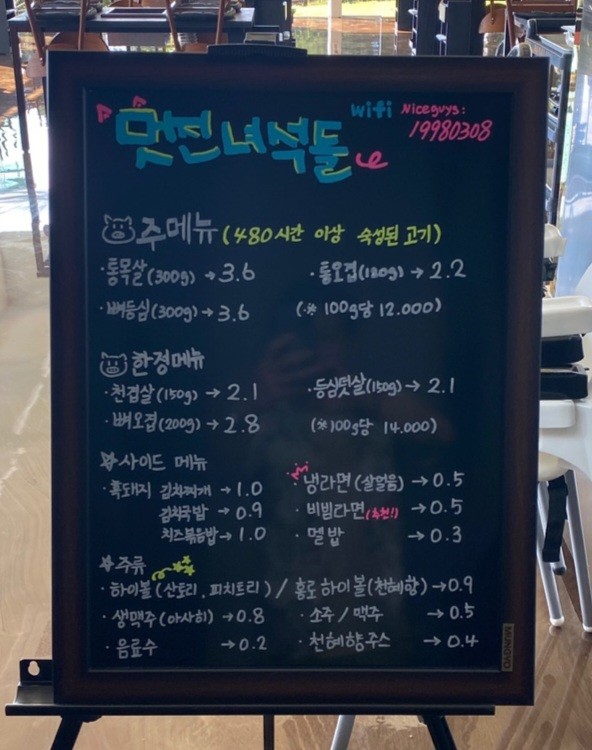 멋진녀석들 wifi Niceguys:
19980308
주메뉴 (480시간 이상 숙성된 고기)
·통목살(300g) → 3.6 ·통오겹(180g) → 2.2
·뼈등심(300g) → 3.6 (※ 100g당 12.000)
한정메뉴
·천겹살(150g) → 2.1 ·등심덧살(150g) → 2.1
·뼈오겹(200g) → 2.8 (※100g당 14.000)
사이드 메뉴
·흑돼지 김치찌개 → 1.0 ·냉라면(살얼음) → 0.5
김치국밥 → 0.9 ·비빔라면(추천!) → 0.5
치즈볶음밥 → 1.0 ·멜밥 → 0.3
주류
·하이볼(산토리, 피치트리) / 홍로하이볼(천혜향) → 0.9
·생맥주(아사히) → 0.8 ·소주 / 맥주 → 0.5
·음료수 → 0.2 ·천혜향주스 → 0.4
MUNGYO